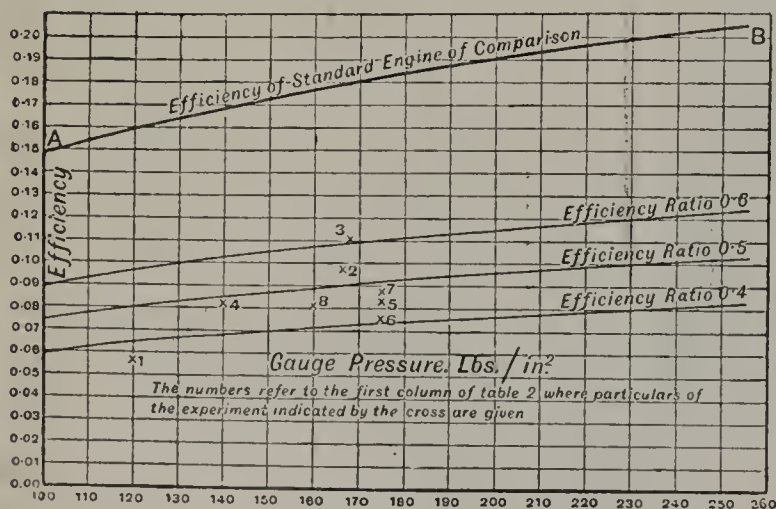 0·20
0·19
0·18
0·17
0·16
0·15
0·14
0·13
0·12
0·11
0·10
0·09
0·08
0·07
0·06
0·05
0·04
0·03
0·02
0·01
0·00
A
B
Efficiency of Standard Engine of Comparison
Efficiency
Efficiency Ratio 0·6
Efficiency Ratio 0·5
Efficiency Ratio 0·4
3
×2
×7
×4
×8
×5
×6
×1
Gauge Pressure. Lbs./in²
The numbers refer to the first column of table 2 where particulars of
the experiment indicated by the cross are given
100 110 120 130 140 150 160 170 180 190 200 210 220 230 240 250 260